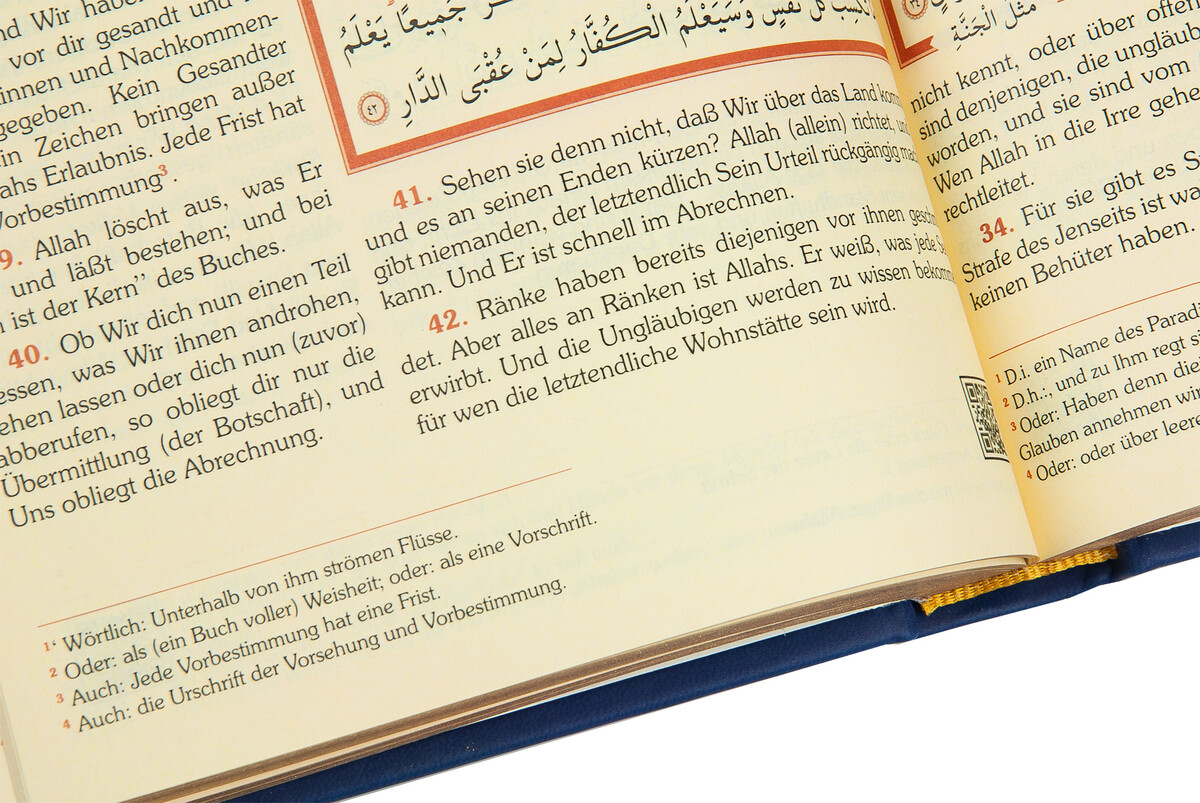 nd Wir haben
vor dir gesandt und i
innen und Nachkommen-
gegeben. Kein Gesandter
in Zeichen bringen außer
ahs Erlaubnis. Jede Frist hat
Vorbestimmung³.
9. Allah löscht aus, was Er
und läßt bestehen; und bei
ist der Kern” des Buches.
40. Ob Wir dich nun einen Teil
essen, was Wir ihnen androhen,
ehen lassen oder dich nun (zuvor)
abberufen, so obliegt dir nur die
Übermittlung (der Botschaft), und
Uns obliegt die Abrechnung.
جَمِيعًا يَعْلَمُ
تَكْسِبُ كُلُّ نَفْسٍ وَسَيَعْلَمُ الْكُفَّارُ لِمَنْ عُقْبَى الدَّارِ ٤٢
41. Sehen sie denn nicht, daß Wir über das Land kom
und es an seinen Enden kürzen? Allah (allein) richtet, un
gibt niemanden, der letztendlich Sein Urteil rückgängig mac
kann. Und Er ist schnell im Abrechnen.
42. Ränke haben bereits diejenigen vor ihnen geschm
det. Aber alles an Ränken ist Allahs. Er weiß, was jede Se
erwirbt. Und die Ungläubigen werden zu wissen bekomm
für wen die letztendliche Wohnstätte sein wird.
1‘ Wörtlich: Unterhalb von ihm strömen Flüsse.
2 Oder: als (ein Buch voller) Weisheit; oder: als eine Vorschrift.
3 Auch: Jede Vorbestimmung hat eine Frist.
4 Auch: die Urschrift der Vorsehung und Vorbestimmung.
مَثَلُ الْجَنَّةِ
nicht kennt, oder über offen
sind denjenigen, die ungläub
worden, und sie sind vom
Wen Allah in die Irre gehe
rechtleitet.
34. Für sie gibt es S
Strafe des Jenseits ist wa
keinen Behüter haben.
1 D.i. ein Name des Paradi
2 D.h.:, und zu Ihm regt si
3 Oder: Haben denn die
Glauben annehmen wir
4 Oder: oder über leere